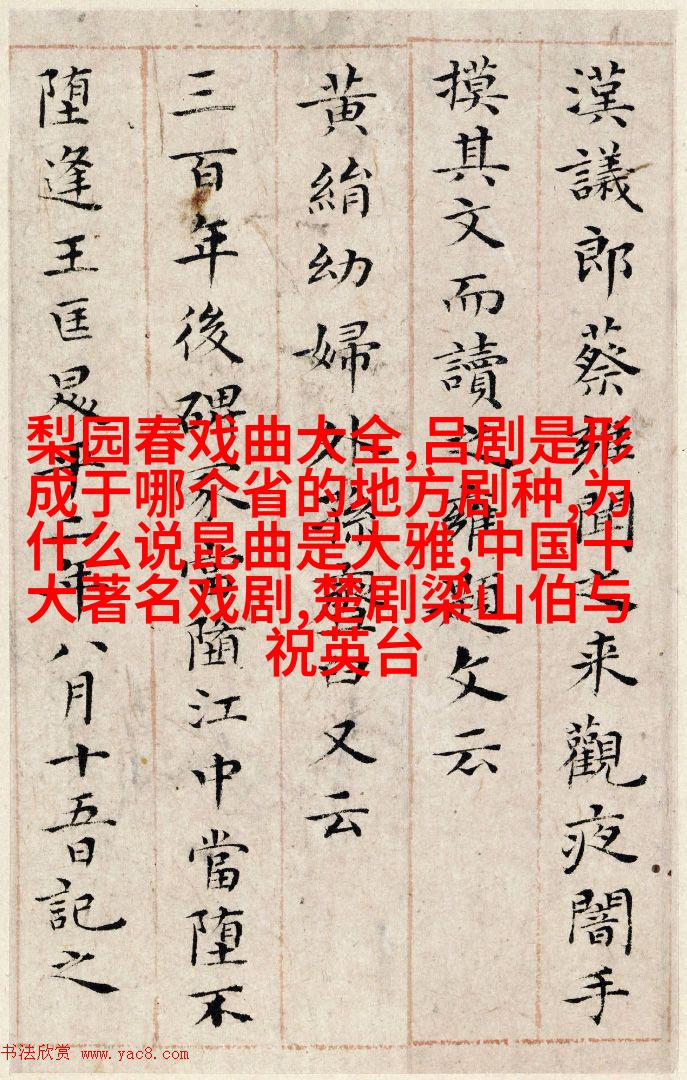 漢議郎蔡雍聞之来觀夜闇手
摸其文而讀之雍題文云
黄絹幼婦外孫韲臼又云
三百年後碑冢當墮江中當堕不
堕逢王匡昇平二年八月十五日記之
梨园春戏曲大全,吕剧是形
成于哪个省的地方剧种,为
什么说昆曲是大雅,中国十
大著名戏剧,楚剧梁山伯与
祝英台
书法欣赏 www.yac8.com